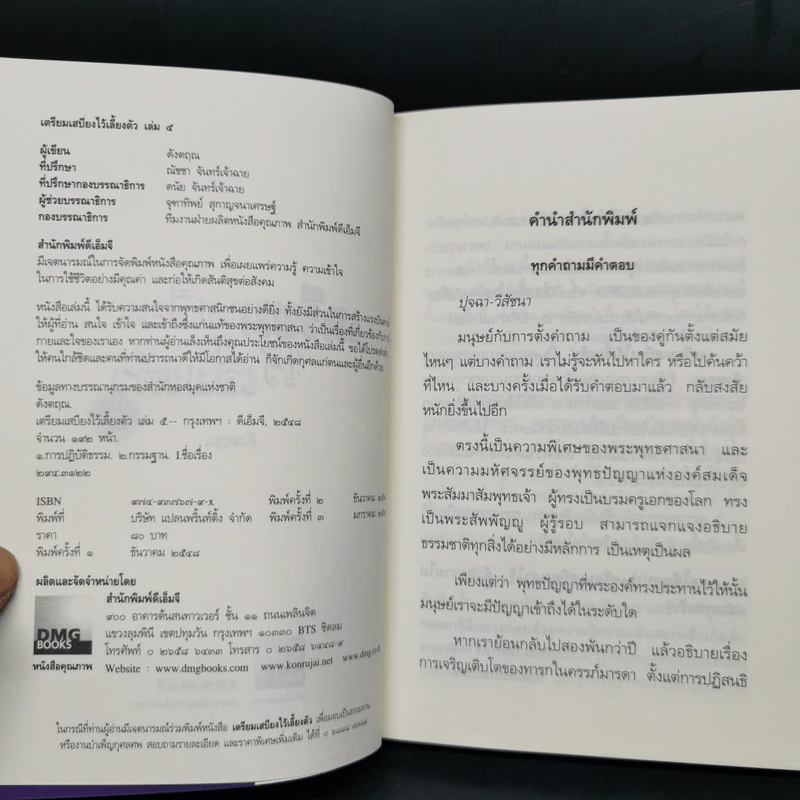 เตรียมเสบียงไว้เลี้ยงตัว เล่ม ๕
ผู้เขียน ดังตฤณ
ที่ปรึกษา ณัชชา จันทร์เจ้าฉาย
ที่ปรึกษากองบรรณาธิการ ดนัย จันทร์เจ้าฉาย
ผู้ช่วยบรรณาธิการ จุฑาทิพย์ สุกาญจนาเศรษฐ์
กองบรรณาธิการ ทีมงานฝ่ายผลิตหนังสือคุณภาพ สำนักพิมพ์ดีเอ็มจี
สำนักพิมพ์ดีเอ็มจี
มีเจตนารมณ์ในการจัดพิมพ์หนังสือคุณภาพ เพื่อเผยแพร่ความรู้ ความเข้าใจ
ในการใช้ชีวิตอย่างมีคุณค่า และก่อให้เกิดสันติสุขต่อสังคม
หนังสือเล่มนี้ ได้รับความสนใจจากพุทธศาสนิกชนอย่างดียิ่ง ทั้งยังมีส่วนในการสร้างแรงบันดาลใจ
ให้ผู้ที่อ่าน สนใจ เข้าใจ และเข้าถึงซึ่งแก่นแท้ของพระพุทธศาสนา ว่าเป็นเรื่องที่เกี่ยวข้องกับการ
กายและใจของเราเอง หากท่านผู้อ่านเล็งเห็นถึงคุณประโยชน์ของหนังสือเล่มนี้ ขอได้โปรดส่งต่อ
ให้คนใกล้ชิดและคนที่ท่านปรารถนาดีให้มีโอกาสได้อ่าน ก็จักเกิดกุศลแก่ตนและผู้อื่นอีกด้วย
ข้อมูลทางบรรณานุกรมของสำนักหอสมุดแห่งชาติ
ดังตฤณ.
เตรียมเสบียงไว้เลี้ยงตัว เล่ม ๕.-- กรุงเทพฯ : ดีเอ็มจี, ๒๕๔๘
จำนวน ๑๙๒ หน้า.
๑.การปฏิบัติธรรม. ๒.กรรมฐาน. I.ชื่อเรื่อง
๒๙๔.๓๑๒๒
ISBN ๙๗๔-๙๓๗๖๗-๙-x พิมพ์ครั้งที่ ๒ ธันวาคม
พิมพ์ที่ บริษัท แปลนพริ้นท์ติ้ง จำกัด พิมพ์ครั้งที่ ๓ มกราคม
ราคา ๘๐ บาท
พิมพ์ครั้งที่ ๑ ธันวาคม ๒๕๔๘
ผลิตและจัดจำหน่ายโดย
สำนักพิมพ์ดีเอ็มจี
๙๐๐ อาคารต้นสนทาวเวอร์ ชั้น ๑๑ ถนนเพลินจิต
แขวงลุมพินี เขตปทุมวัน กรุงเทพฯ ๑๐๓๓๐ BTS ชิดลม
โทรศัพท์ ๐ ๒๖๕๘ ๖๔๓๓ โทรสาร ๐ ๒๖๕๘ ๖๔๔๘-๙
Website : www.dmgbooks.com www.konrujai.net www.dmg.co.th
DMG
BOOKS
หนังสือคุณภาพ
ในกรณีที่ท่านผู้อ่านมีเจตนารมณ์ร่วมพิมพ์หนังสือ เตรียมเสบียงไว้เลี้ยงตัว เพื่อมอบเป็นธรรมทาน
หรืองานบำเพ็ญกุศลศพ สอบถามรายละเอียด และราคาพิเศษเพิ่มเติม ได้ที่
คำนำสำนักพิมพ์
ทุกคำถามมีคำตอบ
ปุจฉา-วิสัชนา
มนุษย์กับการตั้งคำถาม เป็นของคู่กันตั้งแต่สมัย
ไหนๆ แต่บางคำถาม เราไม่รู้จะหันไปหาใคร หรือไปค้นคว้า
ที่ไหน และบางครั้งเมื่อได้รับคำตอบมาแล้ว กลับสงสัย
หนักยิ่งขึ้นไปอีก
ตรงนี้เป็นความพิเศษของพระพุทธศาสนา และ
เป็นความมหัศจรรย์ของพุทธปัญญาแห่งองค์สมเด็จ
พระสัมมาสัมพุทธเจ้า ผู้ทรงเป็นบรมครูเอกของโลก ทรง
เป็นพระสัพพัญญู ผู้รู้รอบ สามารถแจกแจงอธิบาย
ธรรมชาติทุกสิ่งได้อย่างมีหลักการ เป็นเหตุเป็นผล
เพียงแต่ว่า พุทธปัญญาที่พระองค์ทรงประทานไว้ให้นั้น
มนุษย์เราจะมีปัญญาเข้าถึงได้ในระดับใด
หากเราย้อนกลับไปสองพันกว่าปี แล้วอธิบายเรื่อง
การเจริญเติบโตของทารกในครรภ์มารดา ตั้งแต่การปฏิสนธิ